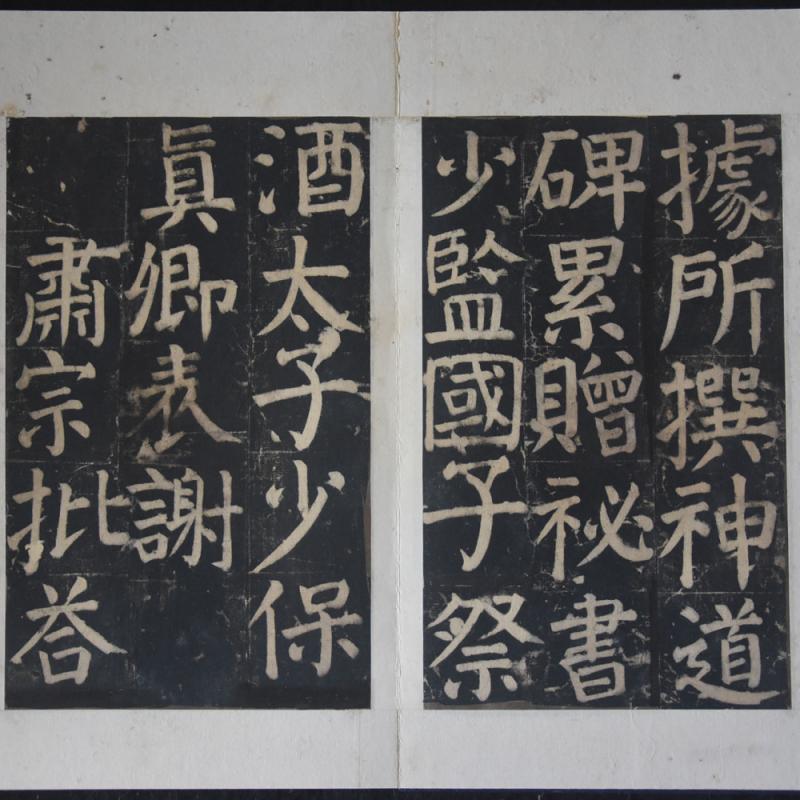 據所撰神道
碑累贈祕書
少監國子祭
酒太子少保
真卿表謝
肅宗批荅